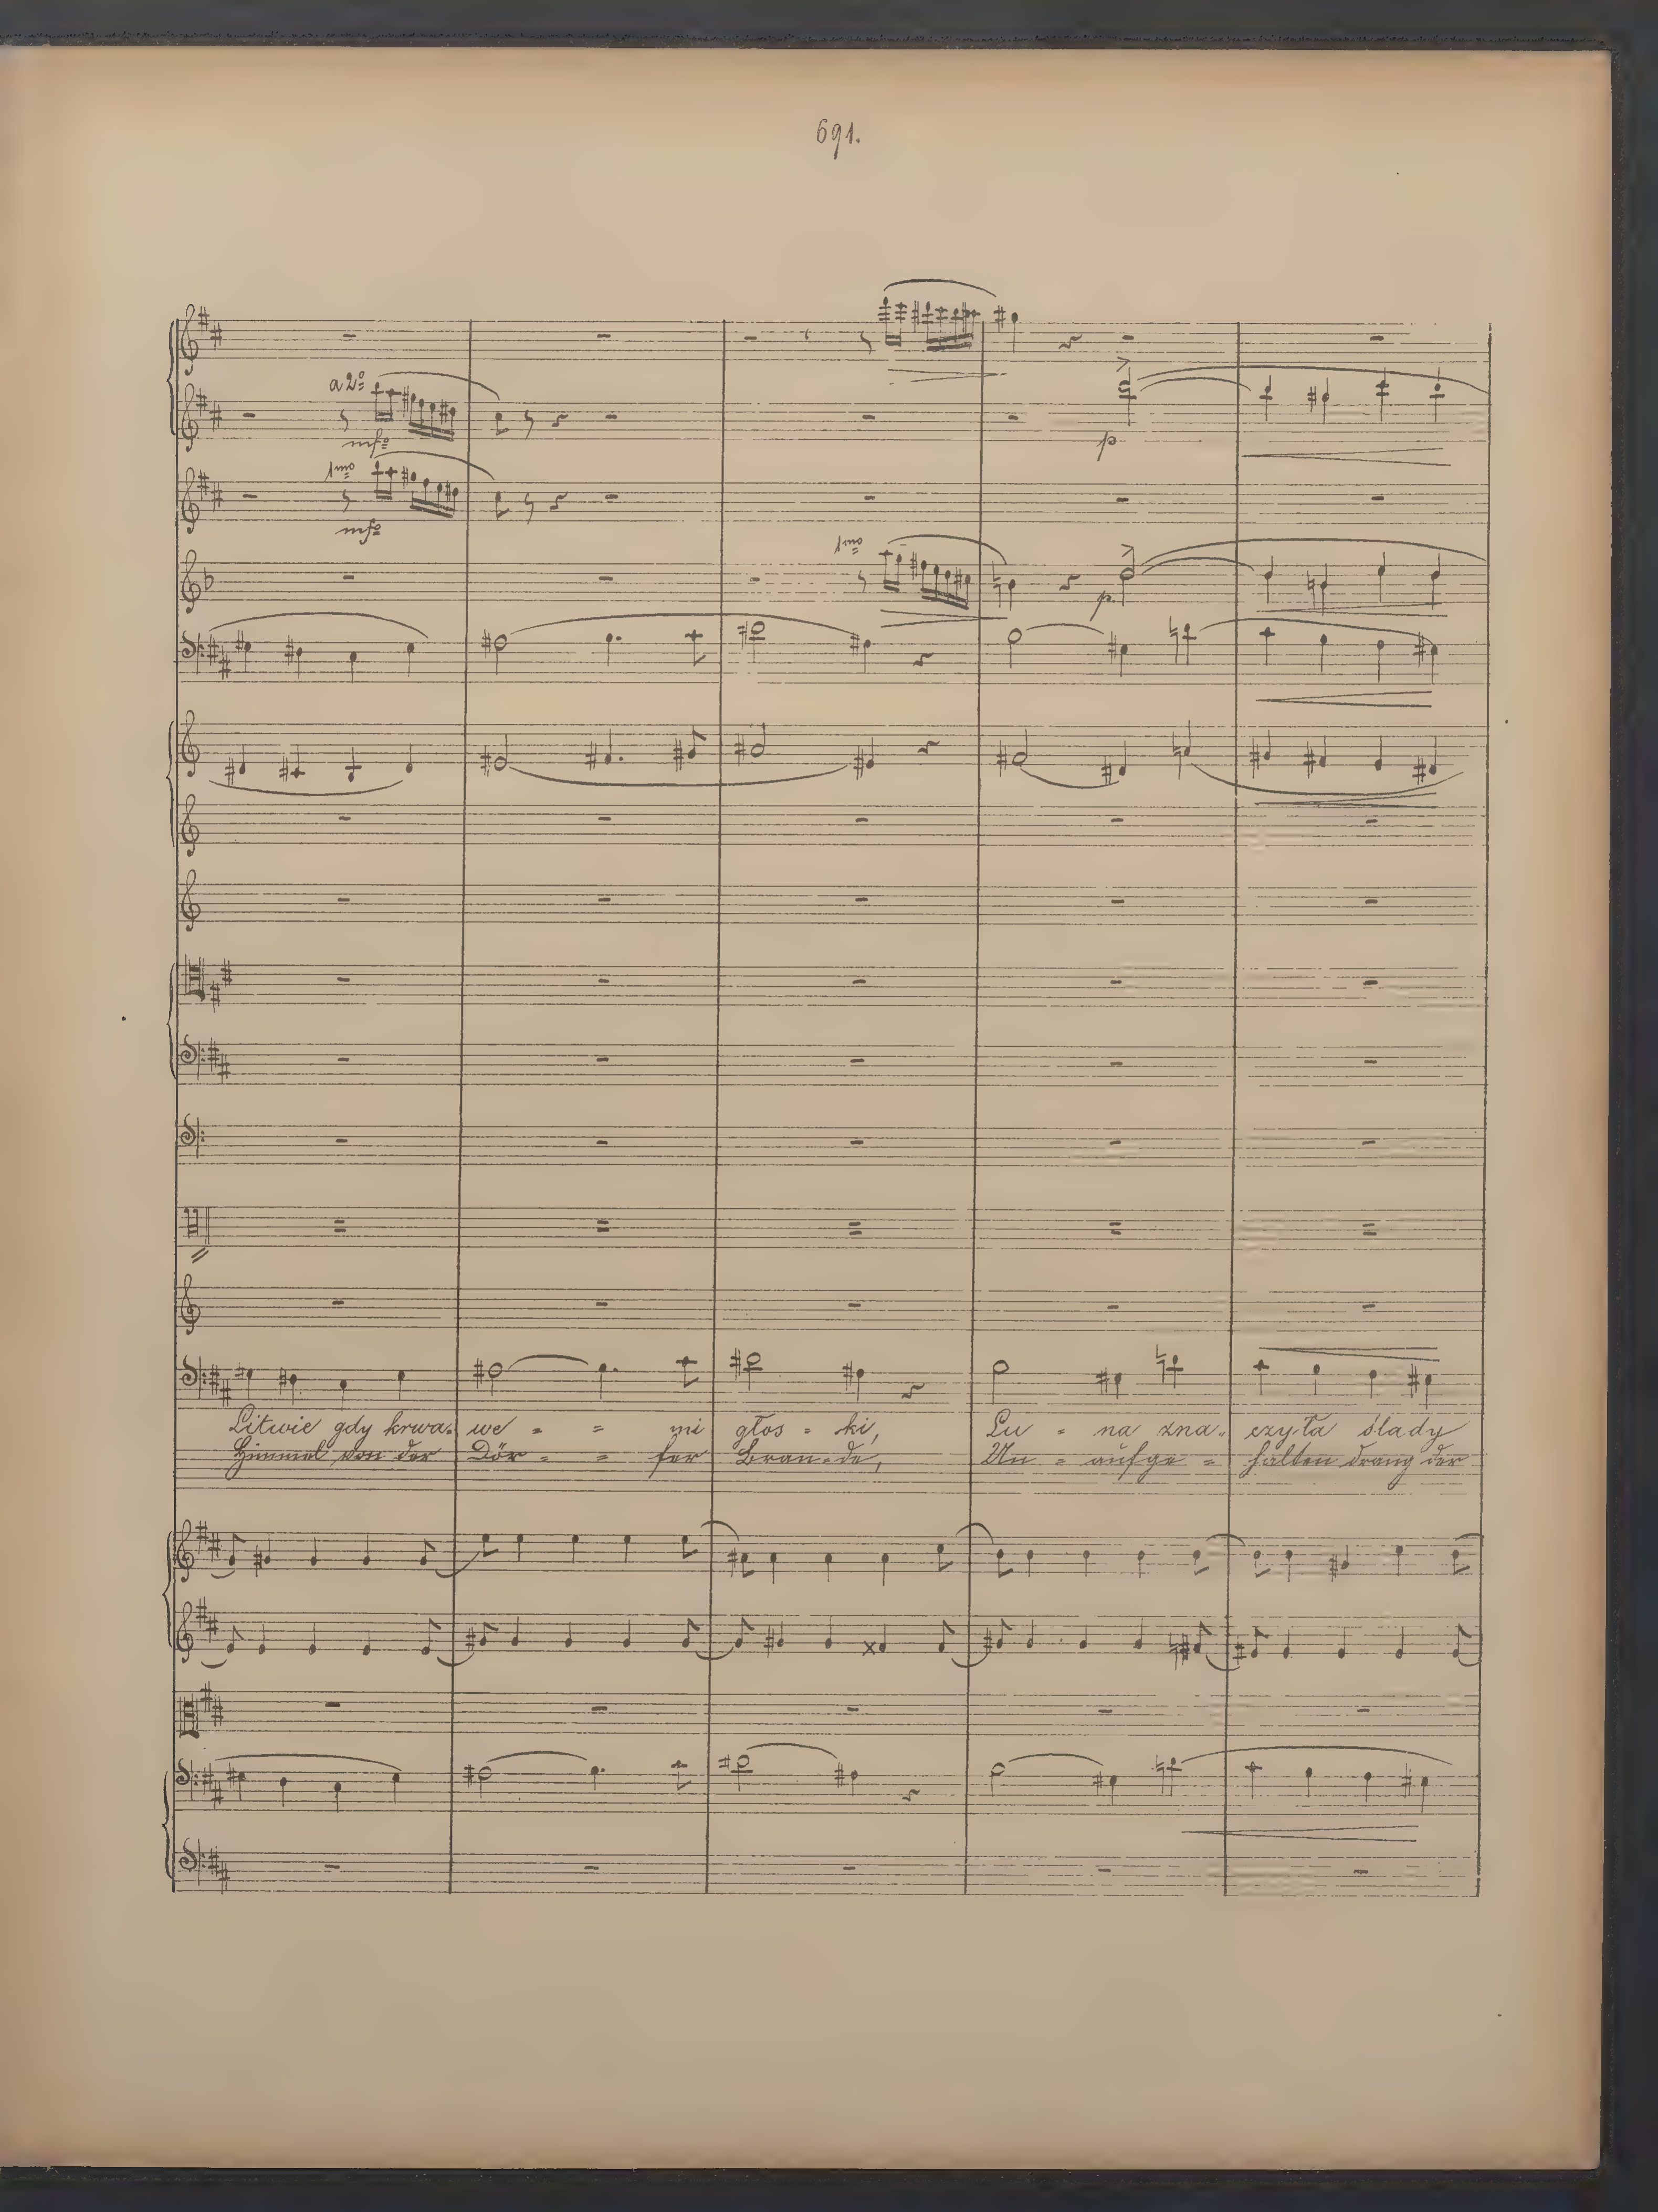 691.
a 2º
mfº
1mo
mfº
p
1mo
p.
Litwie gdy krwa- we - - mi głos - ki, Łu - na zna- czy-ła ślady
Himmel von der Dör - - fer Bran-de, Un - aufge - halten drang der